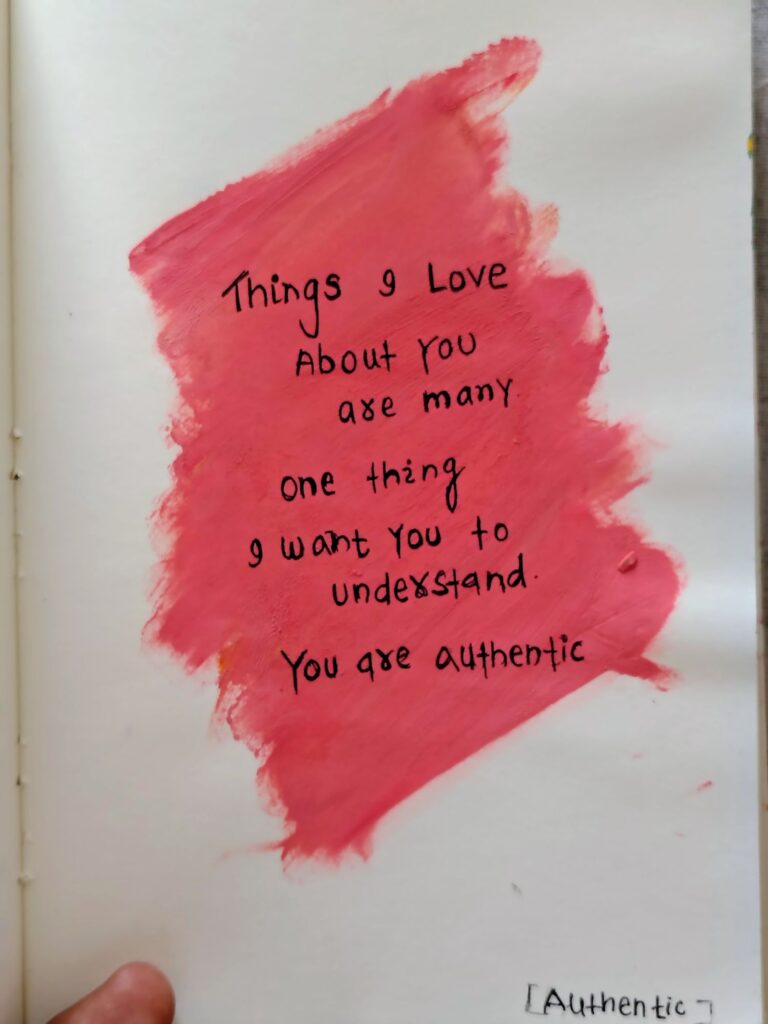 Things I Love
About You
are many.
one thing
I want You to
understand.
You are authentic
[Authentic]